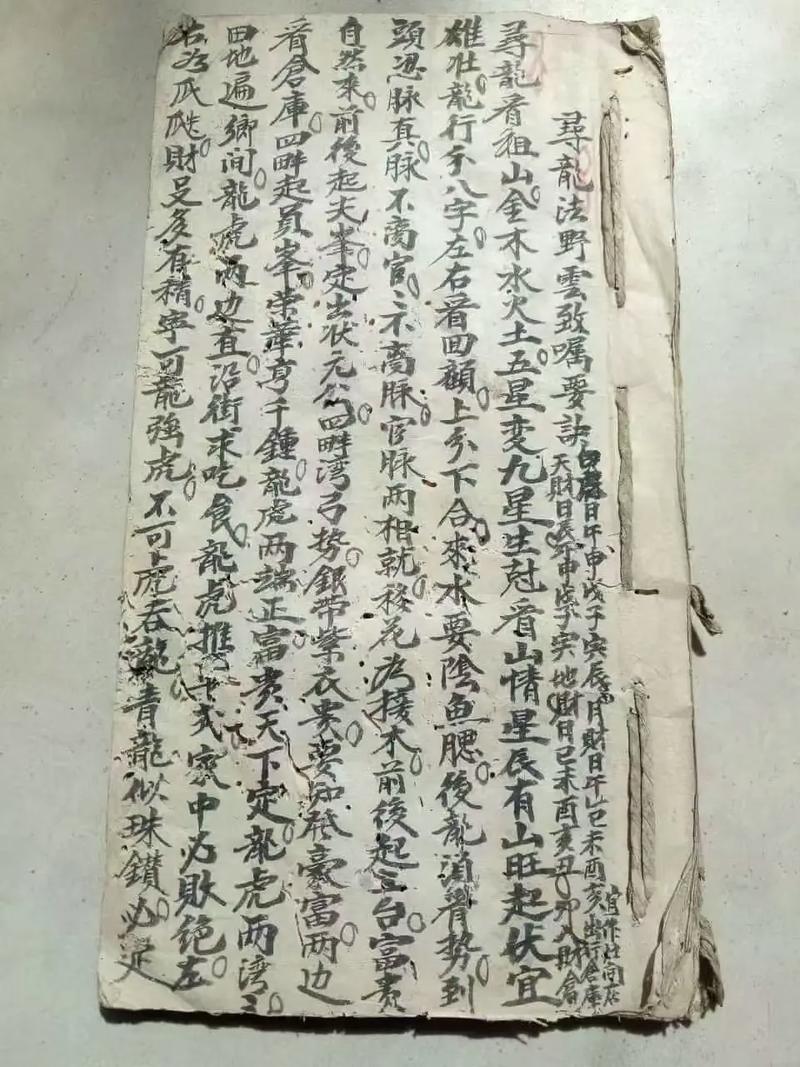 尋龍法野雲致嘱要訣
日午申戌子寅辰 月財日午 巳未酉亥出行倉庫
天財日辰午申戌子寅地財日巳未酉亥丑卯八財倉
尋龍看祖山金木水火土五星变九星生尅看山情星辰有山旺起伏宜
雄壮龍行分八字左右看回顧上分下合來水要陰魚腮後龍須看势到
頭認脉真脉不离官々不离脉官脉两相就移花为接木前後起三台富贵
自然来前後起尖峯定出状元公四畔湾弓势銀带紫衣贵要知發豪富两边
看倉庫四畔起員峯荣華享千鍾龍虎两端正富贵天下定龍虎两湾々
田地遍鄉间龍虎两边直沿街求吃食龍虎推車式家中必敗绝左
右为瓜瓞財足多有積寧可龍強虎不可虎吞龍青龍似珠鑽必定